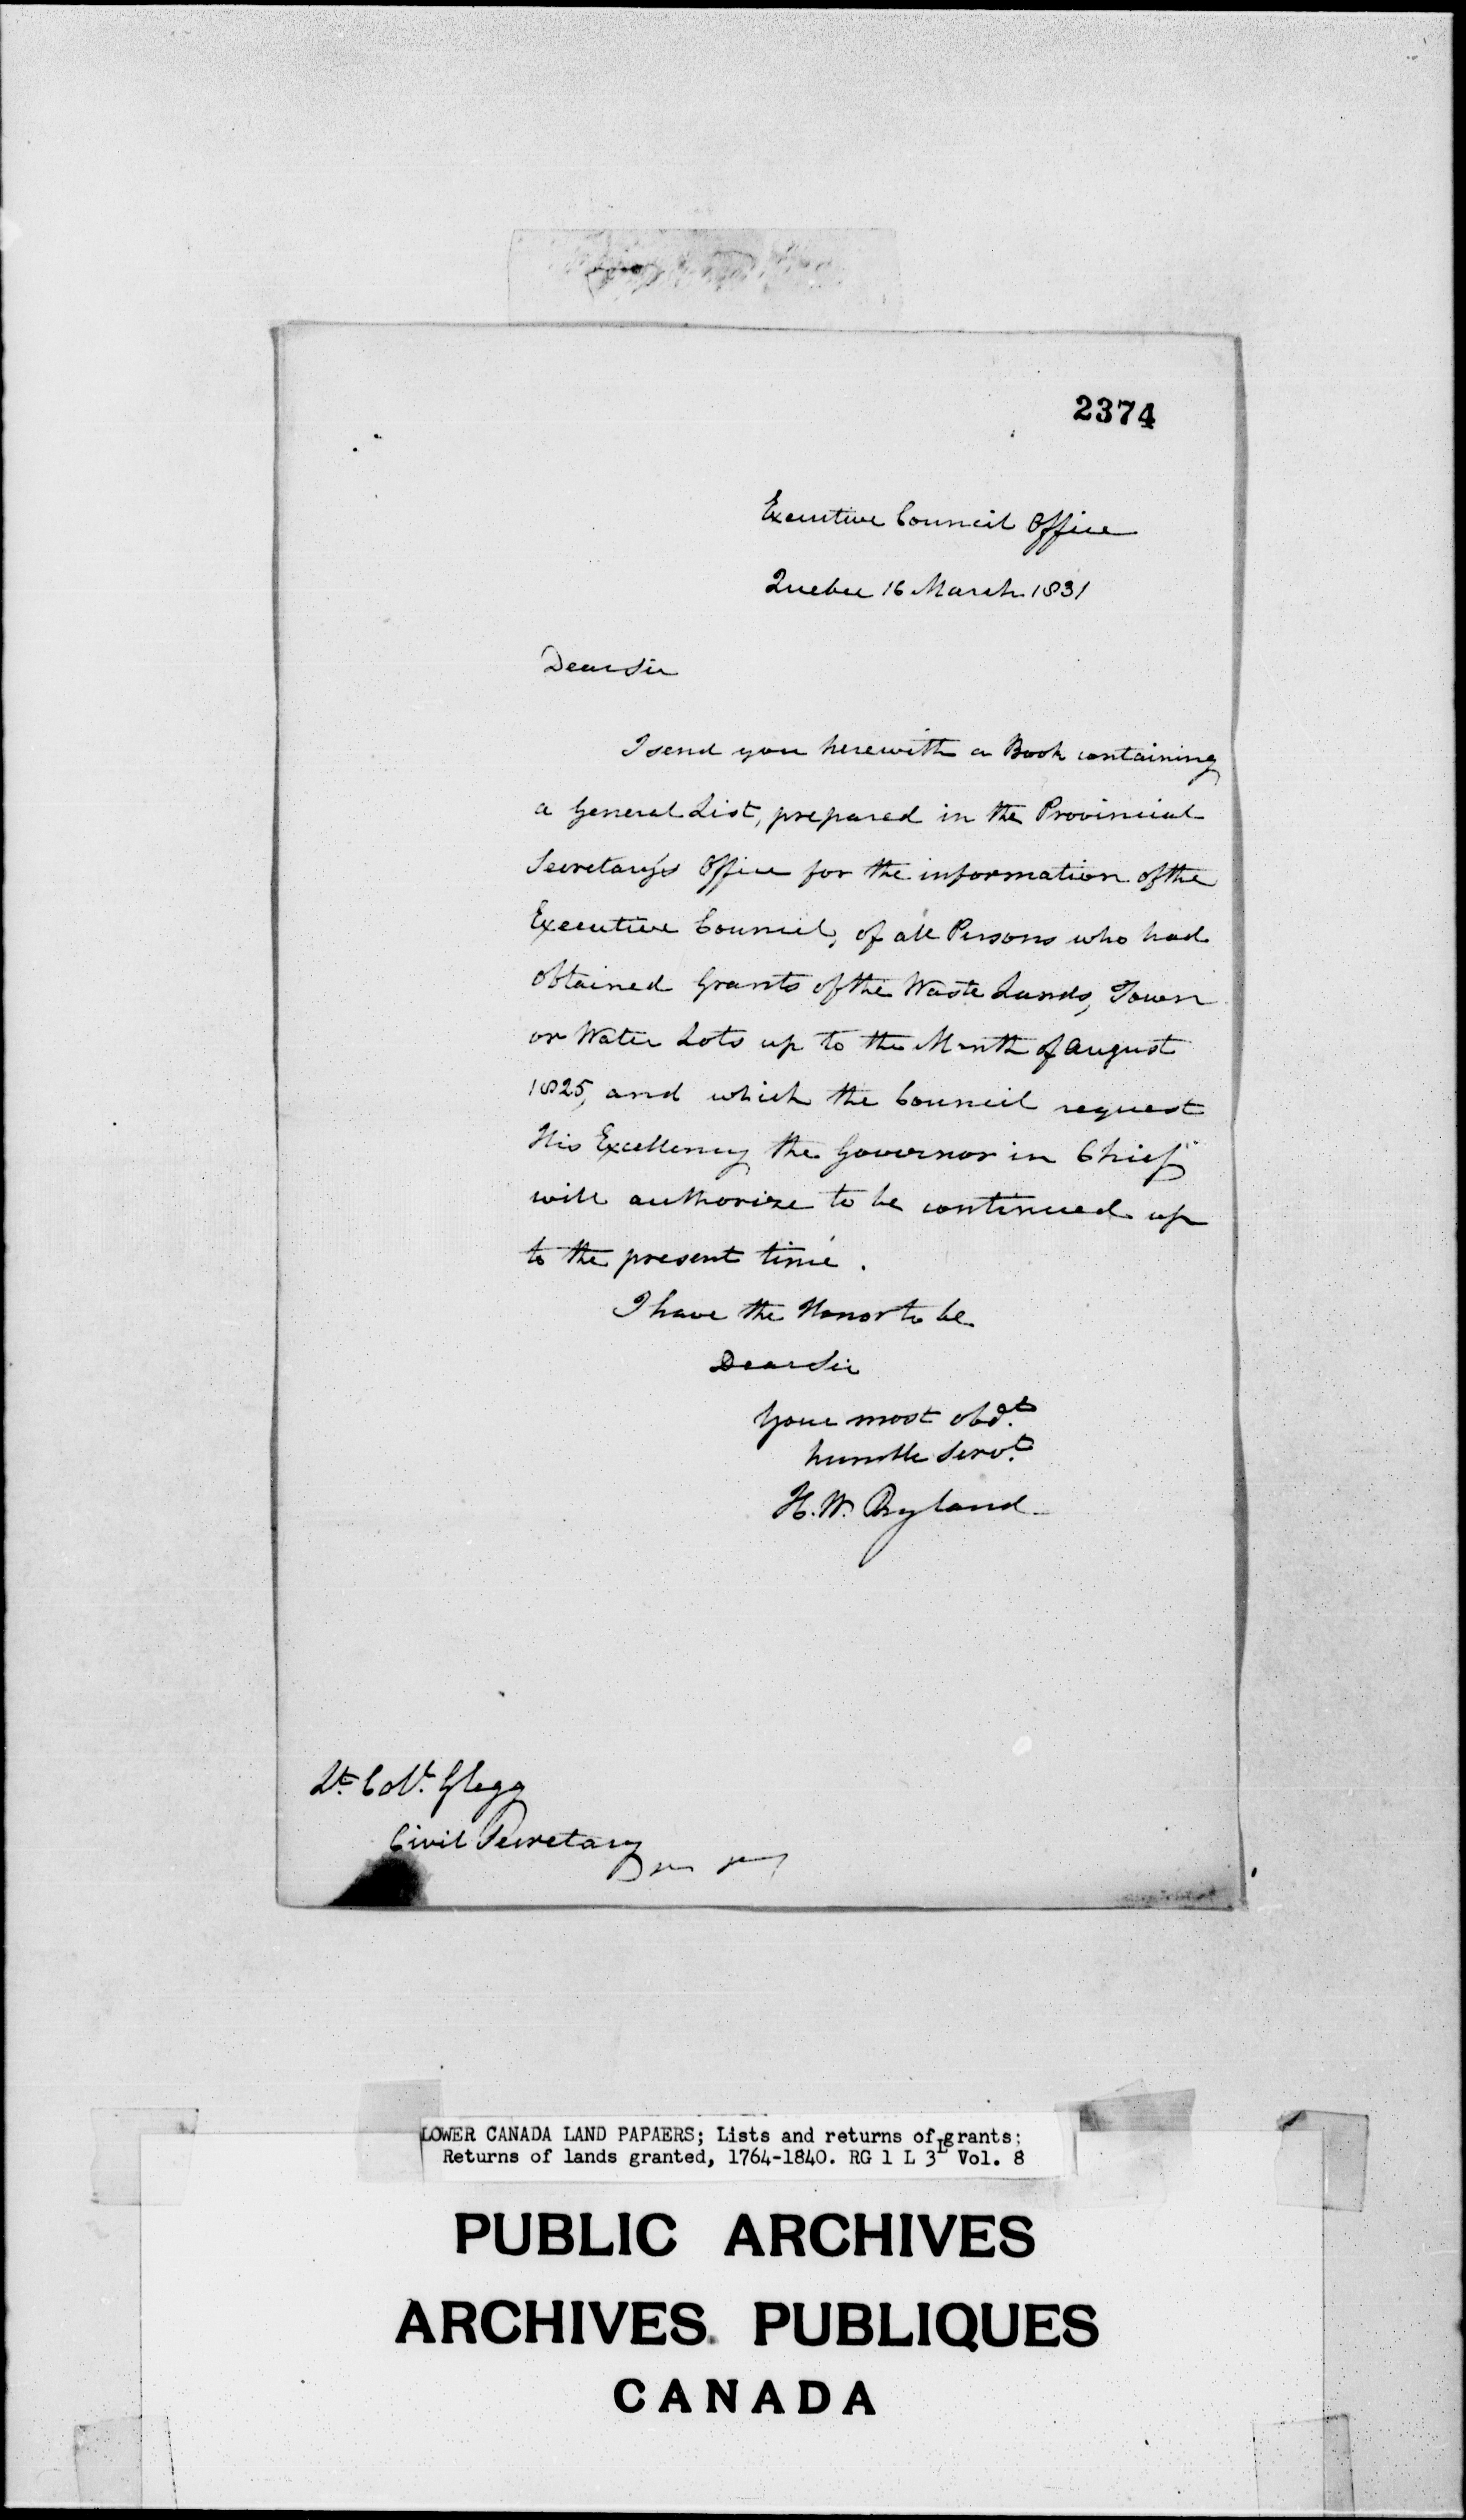 2374
Executive Council Office
Quebec 16 March 1831
Dear Sir
I send you herewith a Book containing
a General List, prepared in the Provincial
Secretary's Office for the information of the
Executive Council, of all Persons who had
obtained Grants of the Waste Lands, Town
or Water Lots up to the Month of August
1825, and which the Council request
His Excellency the Governor in Chief
will authorize to be continued up
to the present time.
I have the Honor to be
Dear Sir
Your most obdt.
humble Servt.
H. W. Ryland
Lt. Coll. Glegg
Civil Secretary
LOWER CANADA LAND PAPAERS; Lists and returns of grants;
Returns of lands granted, 1764-1840. RG 1 L 3L Vol. 8
PUBLIC ARCHIVES
ARCHIVES PUBLIQUES
CANADA